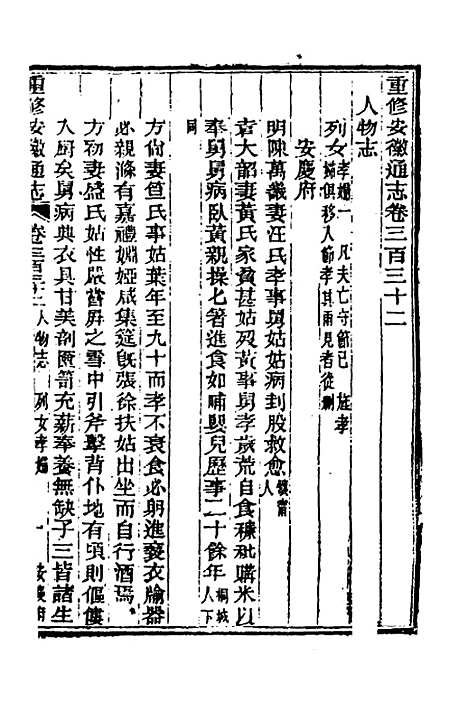 重修安徽通志卷三百三十二
人物志
列女孝婦一 凡夫亡守節已旌孝婦俱移入節孝其兩見者從刪
安慶府
明陳萬鎰妻汪氏孝事舅姑姑病刲股救愈懷甯人
袁大韶妻黃氏家貧甚姑歿黃事舅孝歲荒自食糠秕購米以
奉舅舅病臥黃親操匕箸進食如哺嬰兒歷事二十餘年桐城人下
同
方尙妻查氏事姑葉年至九十而孝不衰食必躬進褻衣牏器
必親滌有嘉禮婣婭咸集筵旣張徐扶姑出坐而自行酒焉
方物妻盛氏姑性嚴嘗屏之雪中引斧擊背仆地有頃則傴僂
入廚矣舅病典衣具甘美剖匲笥充薪奉養無缺子三皆諸生
重修安徽通志 卷三百三十二 人物志 列女孝婦 一 安慶府